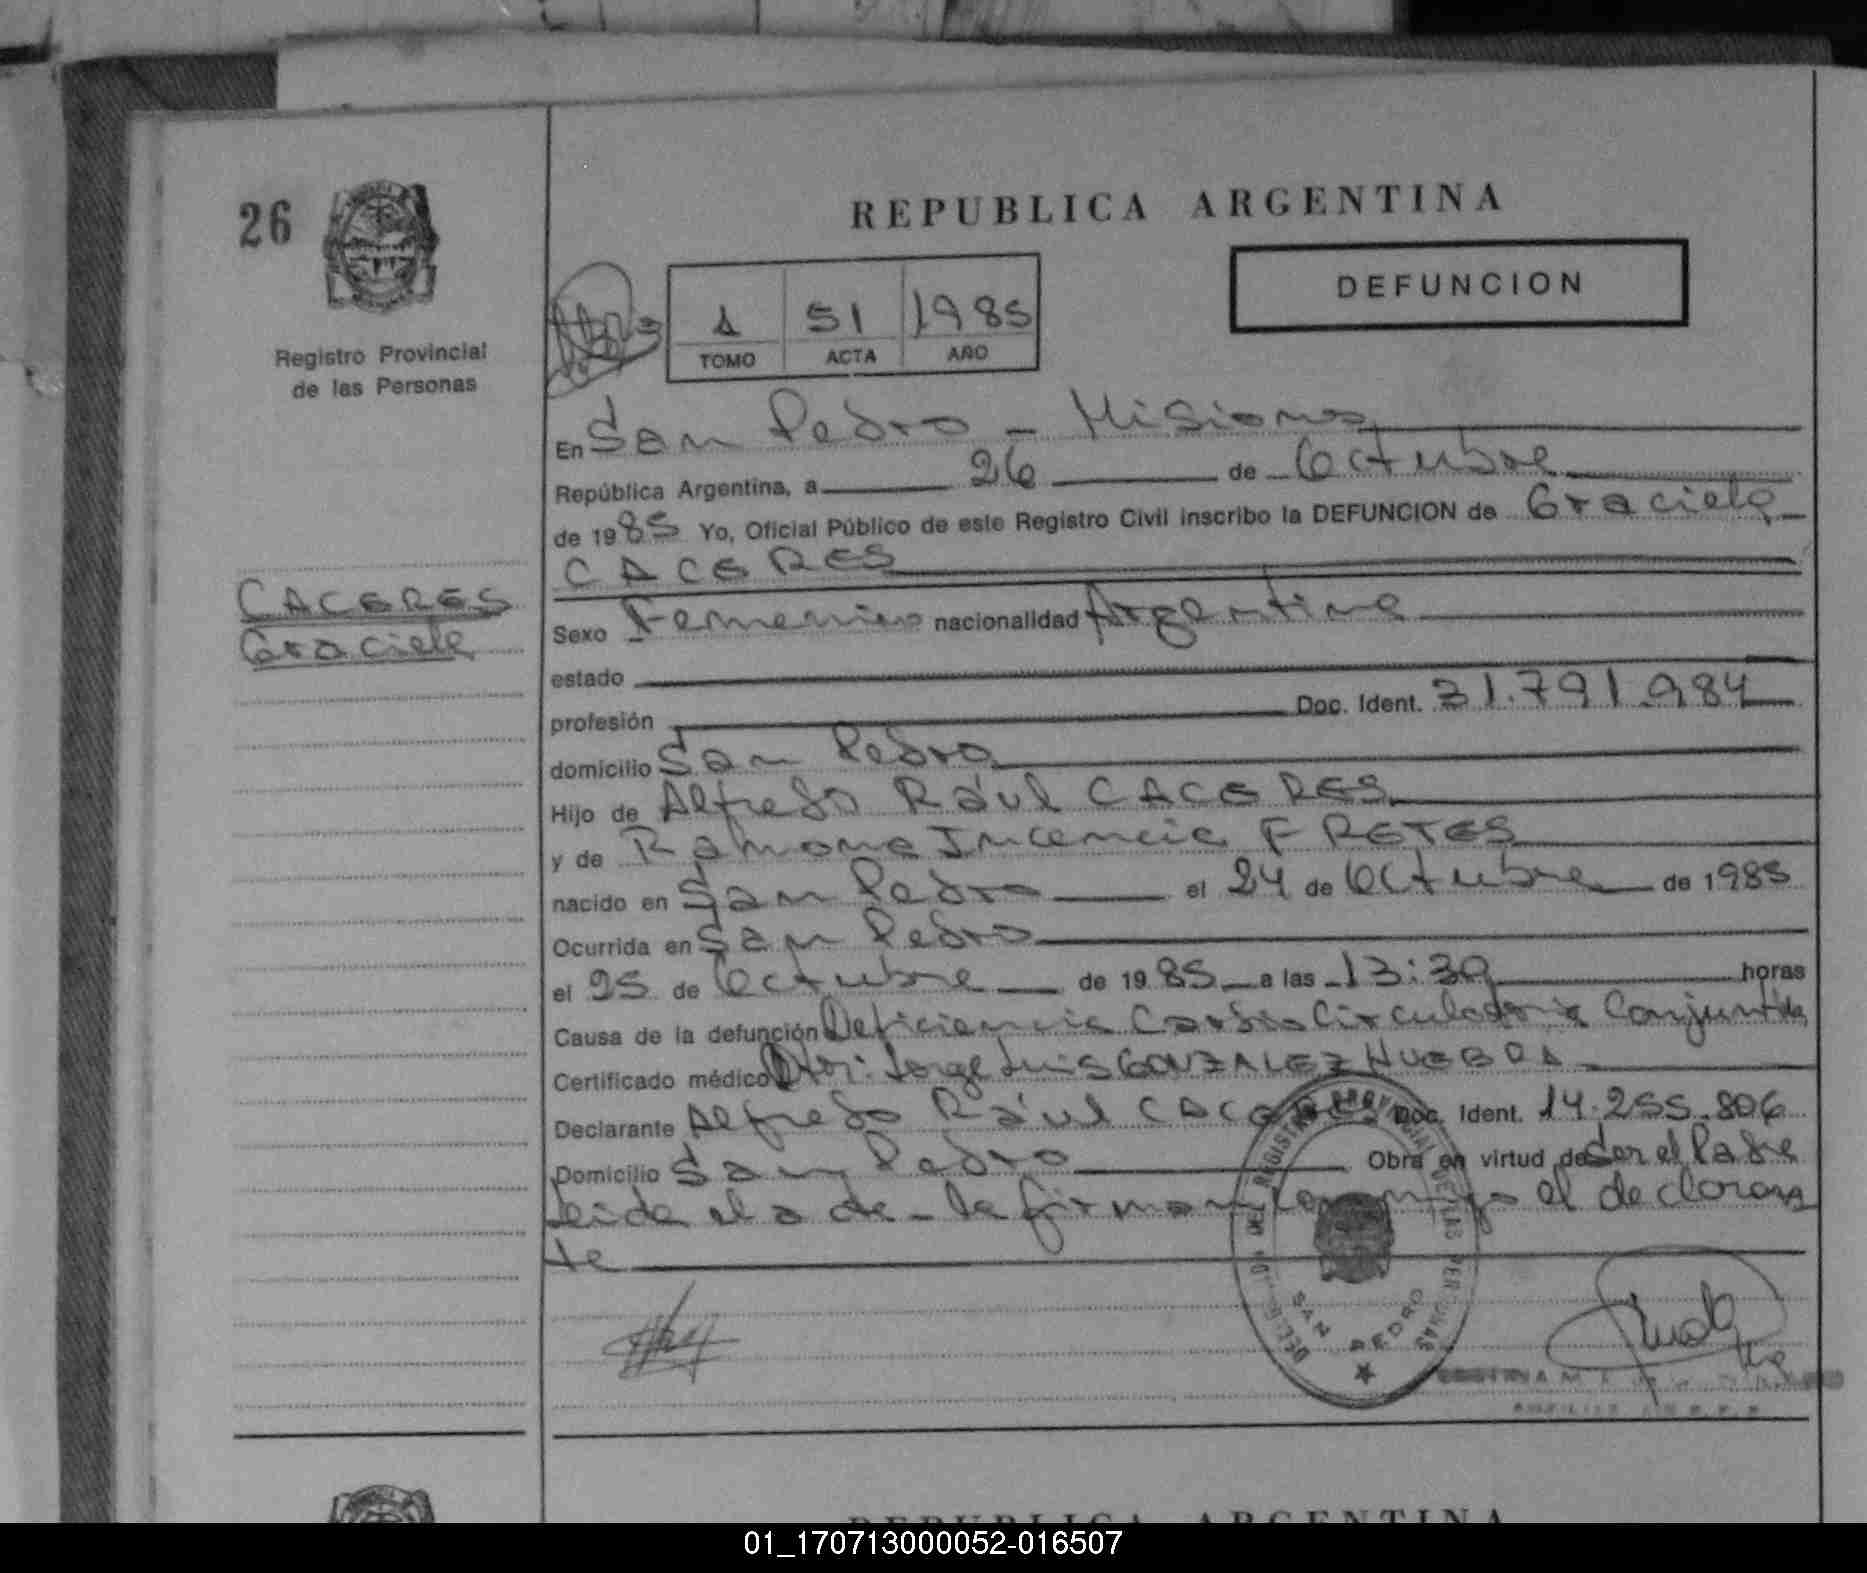 26
REPUBLICA ARGENTINA
DEFUNCION
1 51 1985
TOMO ACTA AÑO
Registro Provincial
de las Personas
En San Pedro - Misiones
República Argentina, a 26 de Octubre
de 1985 Yo, Oficial Público de este Registro Civil inscribo la DEFUNCION de Graciela
CACERES
CACERES
Graciela
Sexo Femenino nacionalidad Argentina
estado
profesión Doc. Ident. 31.791.984
domicilio San Pedro
Hijo de Alfredo Raúl CACERES
y de Ramona Incencia FRETES
nacido en San Pedro el 24 de Octubre de 1985
Ocurrida en San Pedro
el 25 de Octubre de 1985 a las 13:30 horas
Causa de la defunción Deficiencia Cardio Circulatoria Conjunta
Certificado médico Jorge Luis GONZALEZ HUEBRA
Declarante Alfredo Raúl CACERES Doc. Ident. 14.255.806
Domicilio San Pedro Obra en virtud de Ser el Padre
Leida el a de - la firman conmigo el declaran
te
DEL REGISTRO PROVINCIAL DE LAS PERSONAS
SAN PEDRO
REPUBLICA ARGENTINA
01_170713000052-016507